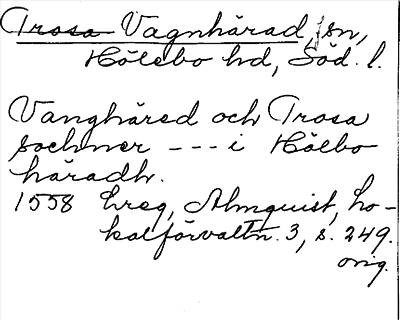 Trosa Vagnhärad, sn,
Hölebo hd, Söd. l.
Vanghäred och Trosa
sochner --- i Hölbo
häradh.
1558 hreg, Almquist, Lo-
kalförvaltn. 3, s. 249.
orig.